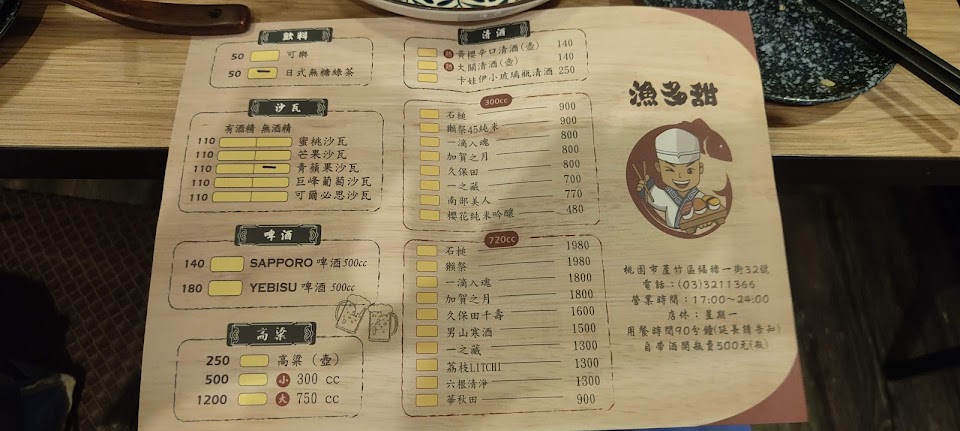 飲料
50 可樂
50 日式無糖綠茶
沙瓦
有酒精 無酒精
110 蜜桃沙瓦
110 芒果沙瓦
110 青蘋果沙瓦
110 巨峰葡萄沙瓦
110 可爾必思沙瓦
啤酒
140 SAPPORO 啤酒 500cc
180 YEBISU 啤酒 500cc
高粱
250 高粱(壺)
500 小 300 cc
1200 大 750 cc
清酒
熱 黃櫻辛口清酒(壺) 140
熱 大關清酒(壺) 140
卡娃伊小玻璃瓶清酒 250
300cc
石槌 900
獺祭45純米 900
一滴入魂 800
加賀之月 800
久保田 800
一之藏 700
南部美人 770
櫻花純米吟釀 480
720cc
石槌 1980
獺祭 1980
一滴入魂 1800
加賀之月 1800
久保田千壽 1600
男山寒酒 1500
一之藏 1300
荔枝LITCHI 1300
六根清淨 1300
華秋田 900
漁多甜
桃園市蘆竹區福祿一街32號
電話:(03)3211366
營業時間:17:00~24:00
店休:星期一
用餐時間90分鐘(延長請告知)
自帶酒開瓶費500元(瓶)